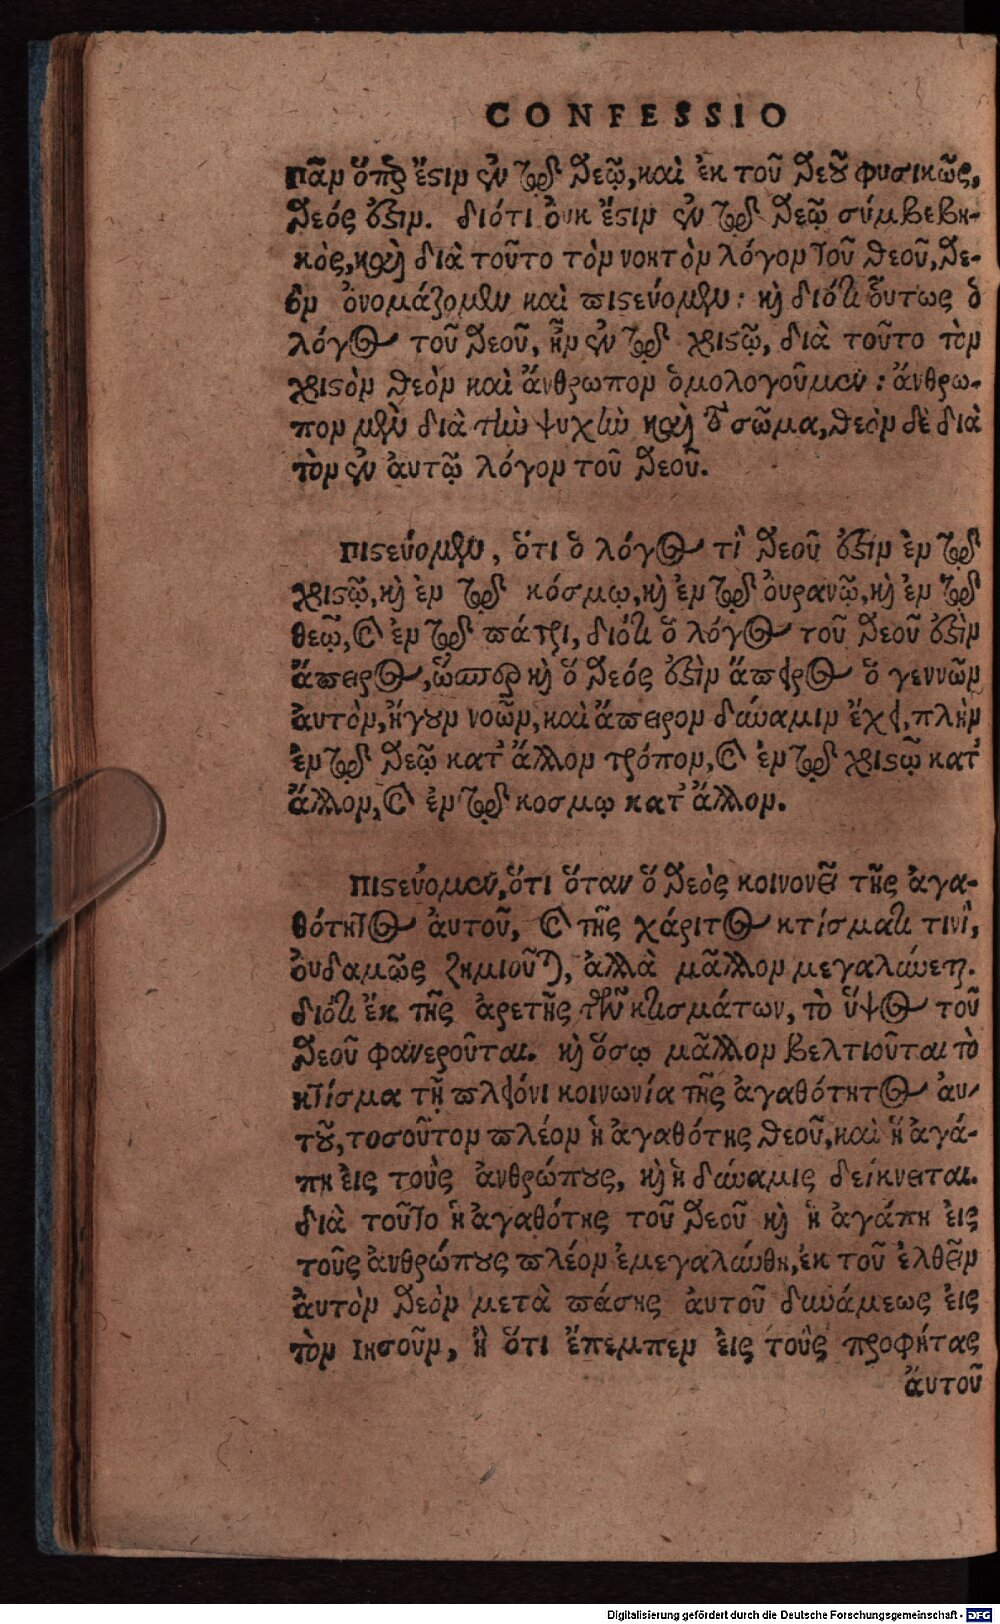 CONFESSIO
πᾶν ὅπερ ἔστιν ἐν τῷ θεῷ, καὶ ἐκ τοῦ θεοῦ φυσικῶς,
θεός ἐστιν. διότι ὀυκ ἔστιν ἐν τῷ θεῷ σύμβεβη-
κὸς, καὶ διὰ τοῦτο τὸν νοητὸν λόγον τοῦ θεοῦ, θε-
ὸν ὀνομάζομεν καὶ πιστεύομεν: καὶ διότι ὅυτως ὁ
λόγος τοῦ θεοῦ, ἦν ἐν τῷ χριστῷ, διὰ τοῦτο τὸν
χριστὸν θεὸν καὶ ἄνθρωπον ὁμολογοῦμεν: ἄνθρω-
πον μὲν διὰ τὴν ψυχὴν καὶ τὸ σῶμα, θεὸν δὲ διὰ
τὸν ἐν ἀυτῷ λόγον τοῦ θεοῦ.
πιστεύομεν, ὅτι ὁ λόγος τοῦ θεοῦ ἐστιν ἐν τῷ
χριστῷ, καὶ ἐν τῷ κόσμῳ, καὶ ἐν τῷ ὀυρανῷ, καὶ ἐν τῷ
θεῷ, καὶ ἐν τῷ πάτρι, διότι ὁ λόγος τοῦ θεοῦ ἐστὶν
ἄπειρος, ὥσπερ καὶ ὁ θεός ἐστὶν ἄπειρος ὁ γεννῶν
ἀυτὸν, ἤγουν νοῶν, καὶ ἄπειρον δύναμιν ἔχει, πλὴν
ἐν τῷ θεῷ κατ' ἄλλον τρόπον, καὶ ἐν τῷ χριστῷ κατ'
ἄλλον, καὶ ἐν τῷ κοσμῳ κατ' ἄλλον.
πιστεύομεν, ὅτι ὅταν ὁ θεὸς κοινονεῖ τῆς ἀγα-
θότητος ἀυτοῦ, καὶ τῆς χάριτος κτίσματι τινὶ,
ὀυδαμῶς ζημιοῦται, ἀλλὰ μᾶλλον μεγαλύνεται.
διότι ἔκ τῆς ἀρετῆς τῶν κτισμάτων, τὸ ὕψος τοῦ
θεοῦ φανεροῦται. καὶ ὅσῳ μᾶλλον βελτιοῦται τὸ
κτίσμα τῇ πλείονι κοινωνία τῆς ἀγαθότητος ἀυ-
τοῦ, τοσοῦτον πλέον ἡ ἀγαθότης θεοῦ, καὶ ἡ ἀγά-
πη ἐις τοὺς ἀνθρώπους, καὶ ἡ δύναμις δείκνεται.
διὰ τοῦτο ἡ ἀγαθότης τοῦ θεοῦ καὶ ἡ ἀγάπη ἐις
τοῦς ἀνθρώπους πλέον ἐμεγαλύνθη, ἐκ τοῦ ἐλθεῖν
ἀυτὸν θεὸν μετὰ πάσης ἀυτοῦ δυνάμεως ἐις
τὸν ιησοῦν, ἢ ὅτι ἔπεμπεν ἐις τοὺς προφήτας
ἀυτοῦ
Digitalisierung gefördert durch die Deutsche Forschungsgemeinschaft - DFG